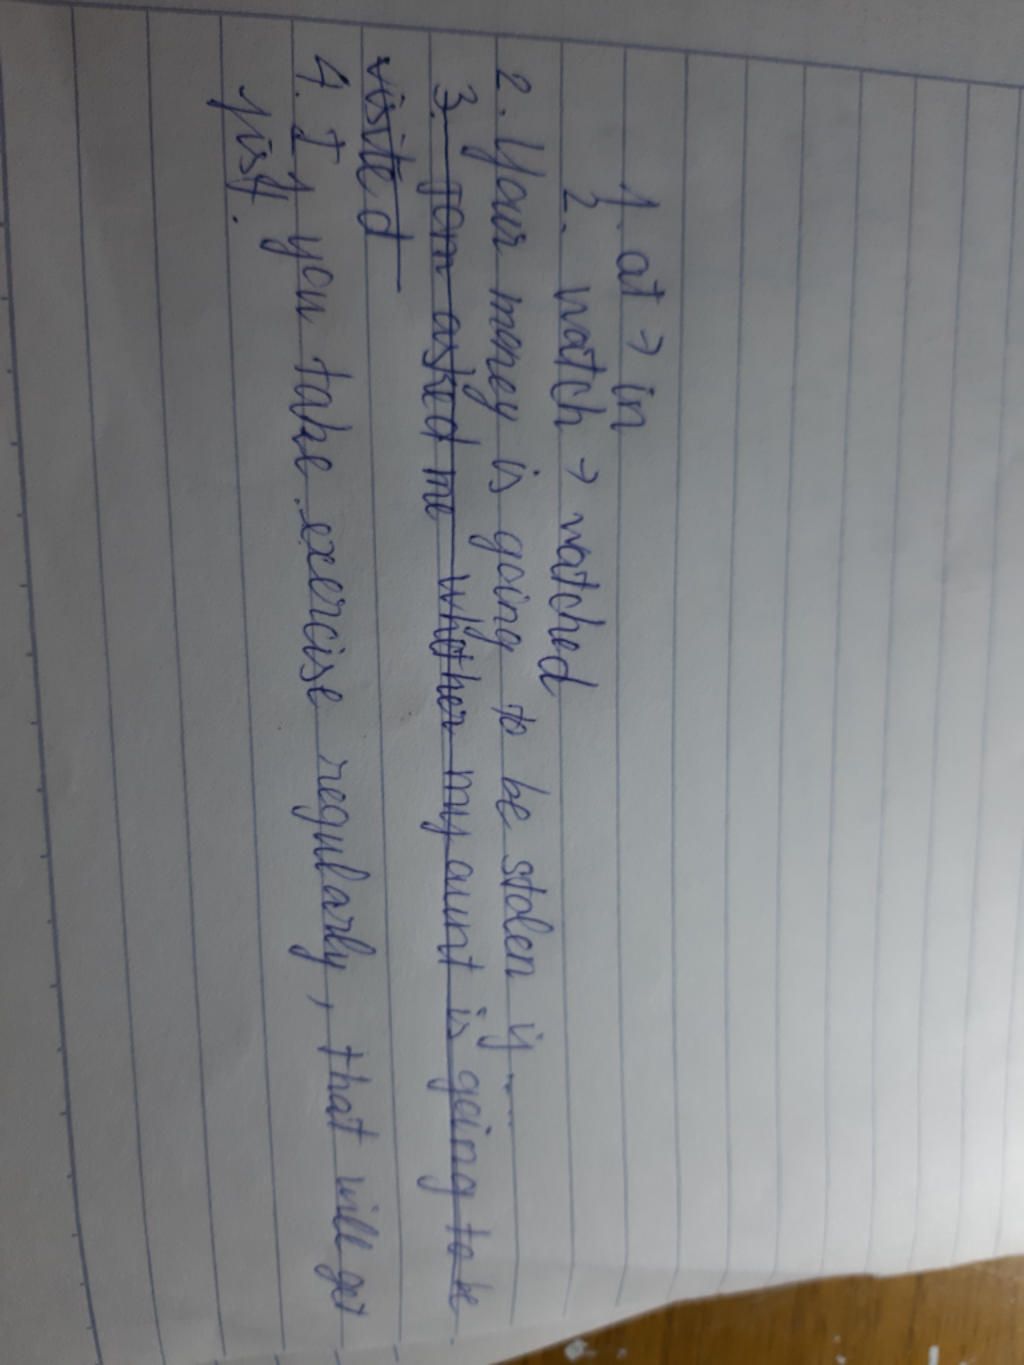 1. at → in
2. watch → watched
2. Your money is going to be stolen if ....
3. Tom asked me whether my aunt is going to be
visited
4. If you take exercise regularly, that will get
fist.